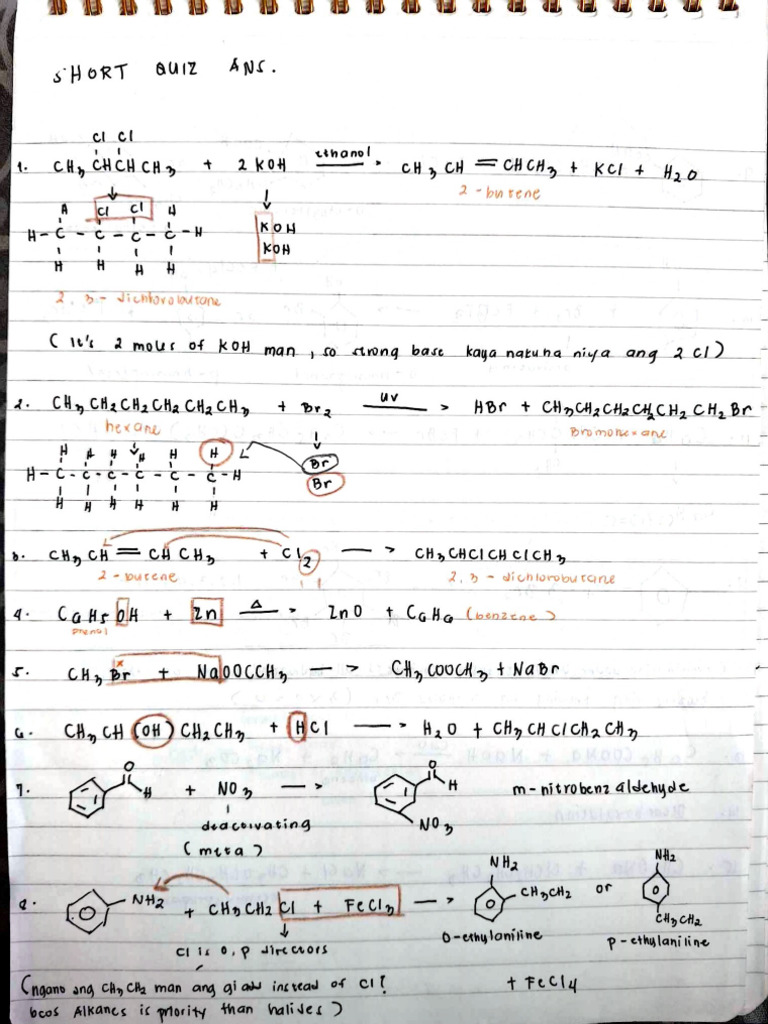 SHORT QUIZ ANS.
Cl Cl
1. CH3CHCHCH3 + 2KOH ethanol → CH3CH=CHCH3 + KCl + H2O
2-butene
H Cl Cl H
H-C-C-C-C-H
H H H H
KOH
KOH
2,3-dichlorobutane
(It's 2 moles of KOH man, so strong base kaya nakuha niya ang 2 Cl)
2. CH3CH2CH2CH2CH2CH3 + Br2 uv → HBr + CH3CH2CH2CH2CH2CH2Br
hexane Bromohexane
H H H H H H
H-C-C-C-C-C-C-H
H H H H H H
Br
Br
3. CH3CH=CHCH3 + Cl2 → CH3CHClCHClCH3
2-butene 2,3-dichlorobutane
4. C6H5OH + Zn Δ → ZnO + C6H6 (benzene)
phenol
5. CH3Br + NaOOCCH3 → CH3COOCH3 + NaBr
6. CH3CH(OH)CH2CH3 + HCl → H2O + CH3CHClCH2CH3
7. O H + NO3 → O H NO3 m-nitrobenzaldehyde
deactivating
(meta)
8. NH2 + CH3CH2Cl + FeCl3 → NH2 CH3CH2 or NH2 CH3CH2
O-ethylaniline p-ethylaniline
Cl is o,p directors
(ngano ang CH3CH2 man ang gi add instead of Cl? + FeCl4
bcos Alkanes is priority than halides)